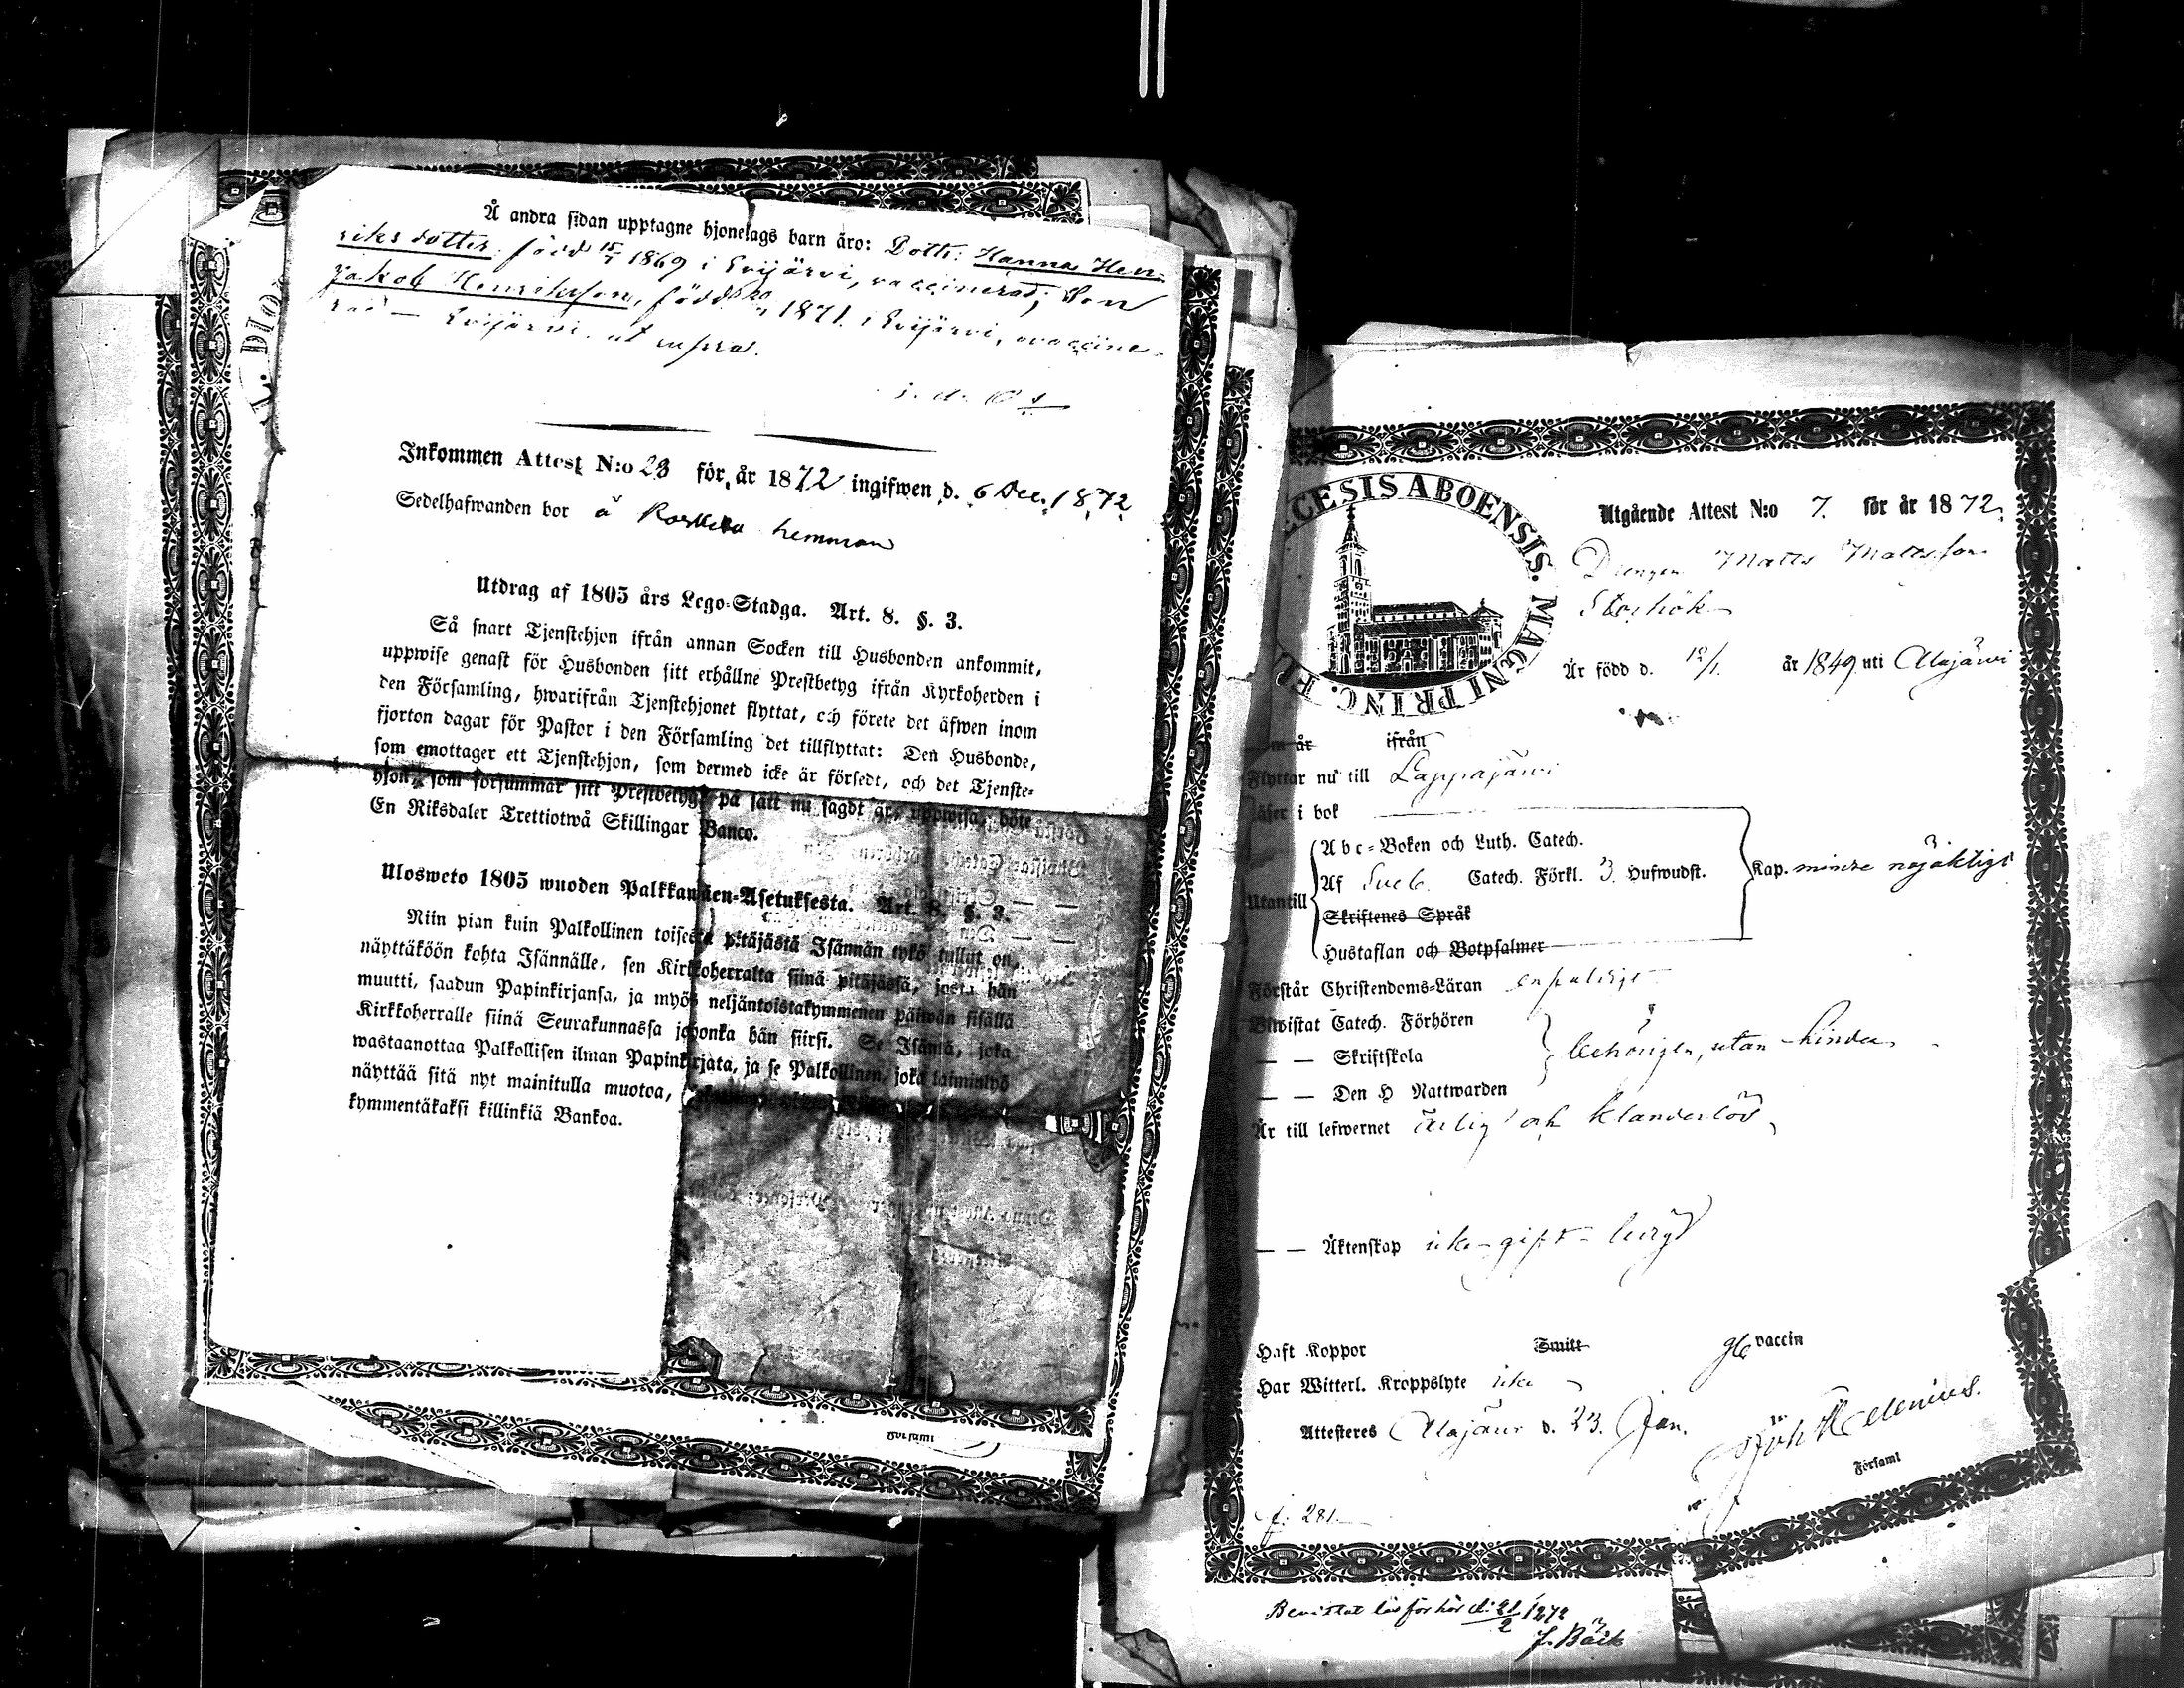 Å andra sidan upptagne hjonelags barn äro: Dottr: Hanna Hen-
riks dotter, född 15/1 1869 i Evijärvi, vaccinerad; Son
Jakob Henriksson, född 1871 i Evijärvi, ovaccine-
rad — Evijärvi, ut supra.
Inkommen Attest N:o 23 för år 1872 ingifwen d. 6 Dec. 1872
Sedelhafwanden bor å hemman
Utdrag af 1805 års Lego-Stadga. Art. 8. §. 3.
Så snart Tjenstehjon ifrån annan Socken till Husbonden ankommit,
uppwise genast för Husbonden sitt erhållne Prestbetyg ifrån Kyrkoherden i
den Församling, hwarifrån Tjenstehjonet flyttat, och förete det äfwen inom
fjorton dagar för Pastor i den Församling det tillflyttat: Den Husbonde,
som emottager ett Tjenstehjon, som dermed icke är försedt, och det Tjenste-
hjon, som försummar sitt Prestbetyg på sätt nu sagdt är, uppwisa, böte
En Riksdaler Trettiotwå Skillingar Banco.
Ulosweto 1805 wuoden Palkkawäen-Asetuksesta. Art. 8. §. 3.
Niin pian kuin Palkollinen toisesta pitäjästä Isännän tykö tullut on,
näyttäköön kohta Isännälle, sen Kirkkoherralta siinä pitäjässä, josta hän
muutti, saadun Papinkirjansa, ja myös neljäntoistakymmenen päiwän sisällä
Kirkkoherralle siinä Seurakunnassa johonka hän siirsi. Se Isäntä, joka
wastaanottaa Palkollisen ilman Papinkirjata, ja se Palkollinen, joka laiminlyö
näyttää sitä nyt mainitulla muotoa,
kymmentäkaksi killinkiä Bankoa.
Församl
CESIS ABOENSIS. MAGNI PRINC. FI
Utgående Attest N:o 7. för år 1872.
Drengen Matts Mattsson
Storhök
Är född d. 12/1. år 1849 uti Alajärvi
om år ifrån
Flyttar nu till Lappajärvi
Läser i bok
Utantill
Abc-Boken och Luth. Catech.
Af Sveb. Catech. Förkl. 3. Hufwudst.
Skriftenes Språk
Hustaflan och Botpsalmer
Kap. mindre nöjaktigt
Förstår Christendoms-Läran enfaldigt
Biwistat Catech. Förhören
— — Skriftskola
— — Den H Nattwarden
behörigen, utan hinder
Är till lefwernet ärlig och klanderlös
— — Äktenskap icke gift
Haft Koppor Smitt vaccin
Har Witterl. Kroppslyte icke
Attesteres Alajärvi d. 23. Jan.
Joh Helenius.
Församl
f. 281.
Bevistat läsförhör d: 21/2 1872
J. Bäck